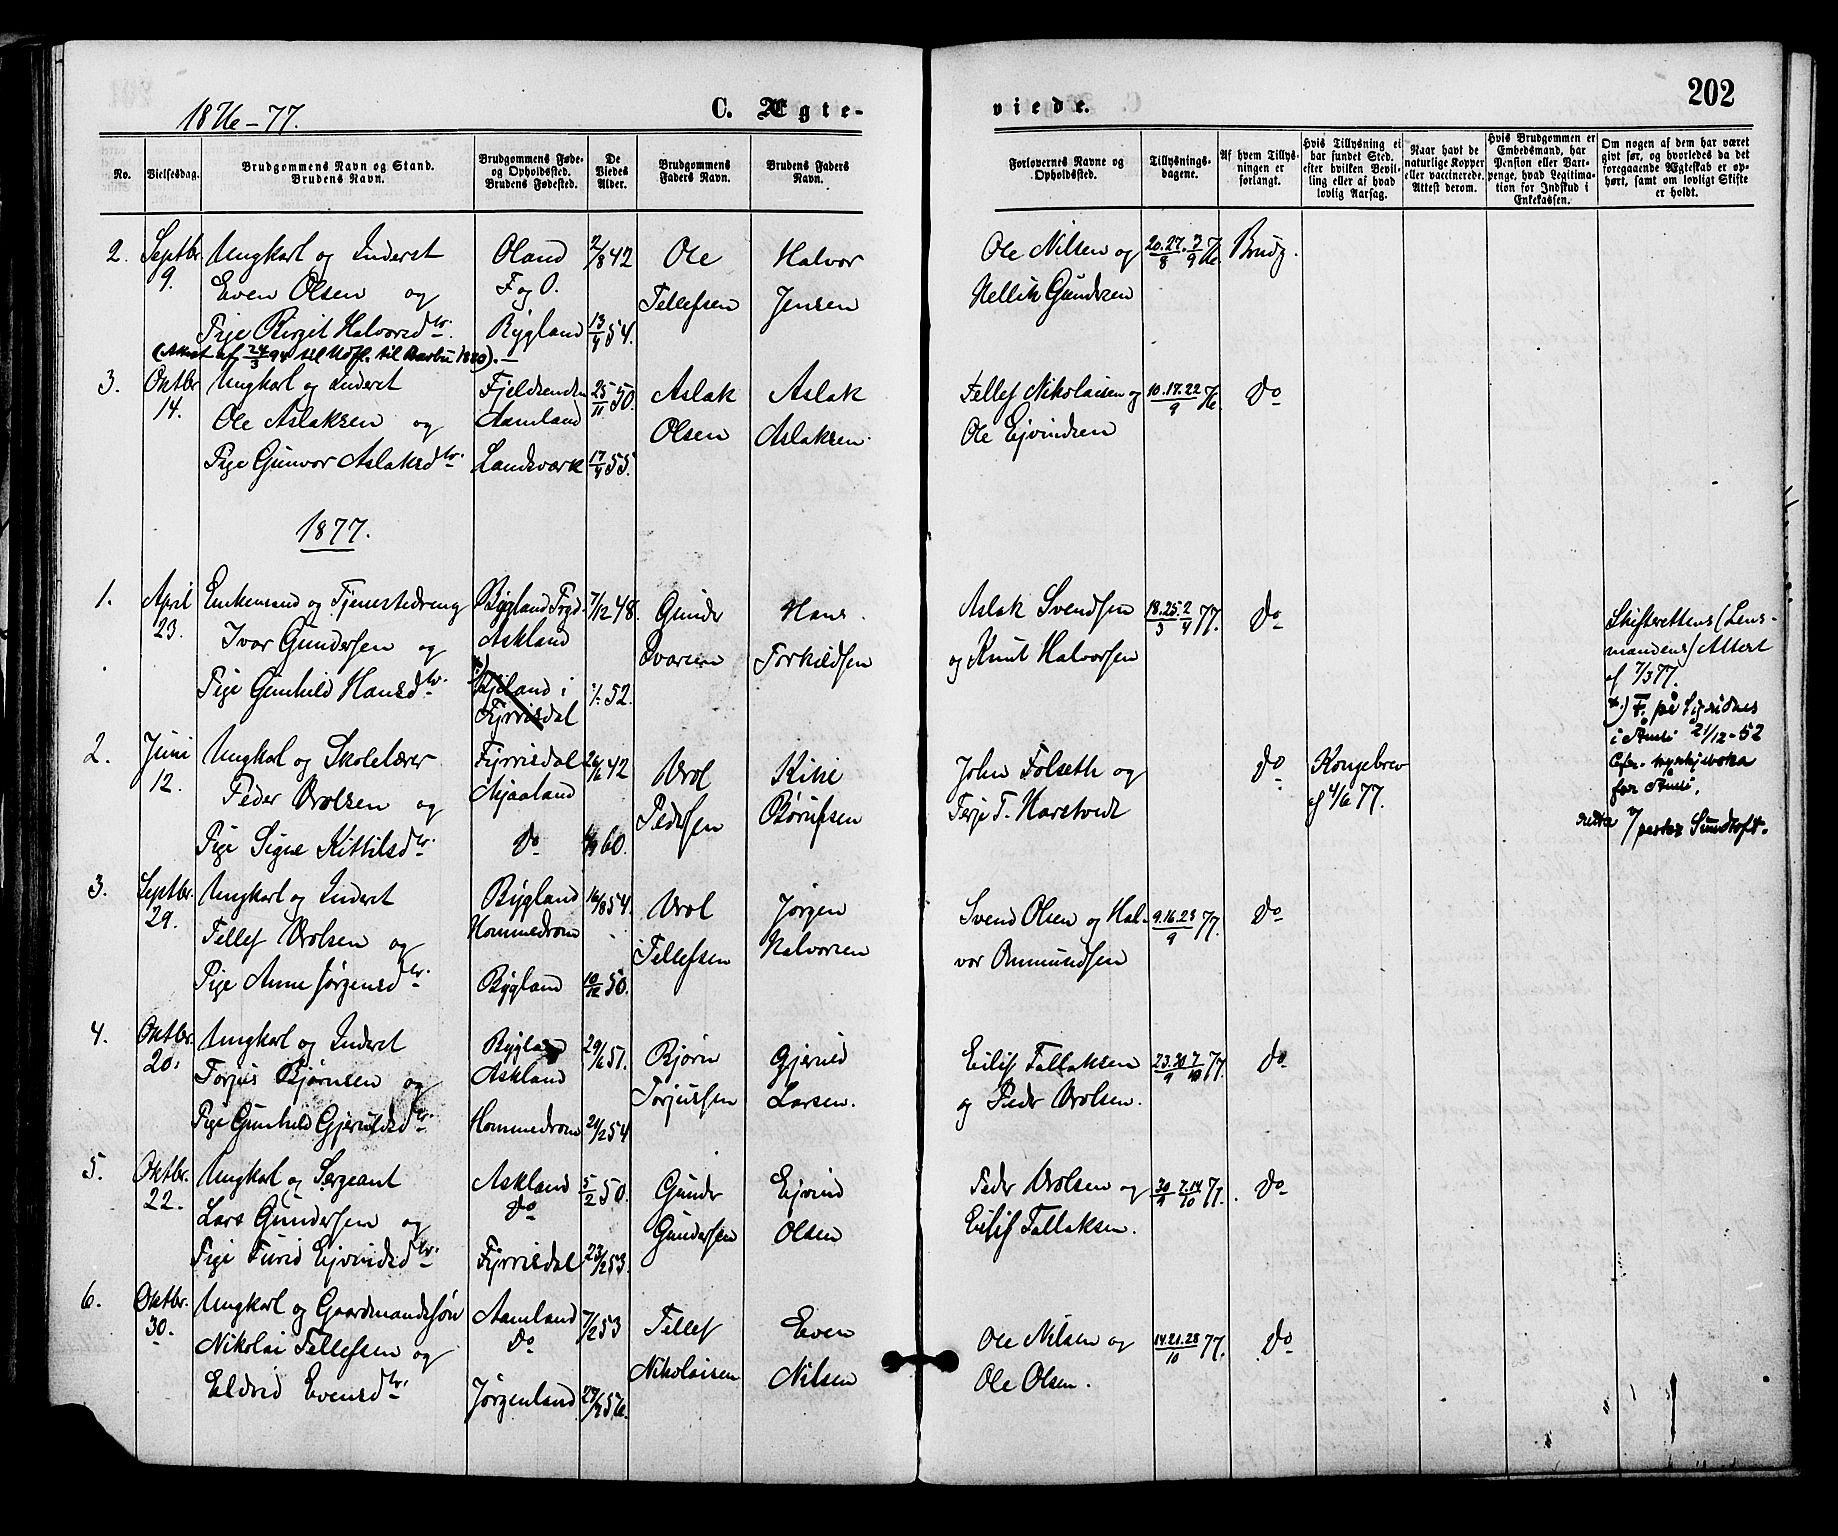 202
1876-77.
C. Ægte-
viede.
No.
Vielsesdag.
Brudgommens Navn og Stand.
Brudens Navn.
Brudgommens Føde-
og Opholdsted.
Brudens Fødested.
De
Viedes
Alder.
Brudgommens
Faders Navn.
Brudens Faders
Navn.
Forlovernes Navne og
Opholdssted.
Tillysnings-
dagene.
Af hvem Tillys-
ningen er
forlangt.
Hvis Tillysning ei
har fundet Sted,
efter hvilken Bevil-
ling eller af hvad
lovlig Aarsag.
Naar havt de
naturlige Kopper
eller vaccinerede.
Attest derom.
Hvis Brudgommen er
Embedsmand, har
Pension eller Vart-
penge, hvad Legitima-
tion for Indskud i
Enkekassen.
Om nogen af dem har været
givt før, og hvorledes da det
foregaaende Ægteskab er op-
hørt, samt om lovligt Skifte
er holdt.
2. Septbr. 9.
Ungkarl og Inderst
Even Olsen og
Pige Birgit Halvorsdtr.
Oland
F og O.
Bygland
2/8 42
13/4 54.
Ole
Tellefsen
Halvor
Jensen
Ole Nilsen og
Kellik Gundersen
20.27./8 3/9 76
Brudg.
(Attest af 24/3 94 til Udfl. til Barbu 1880).
3. Oktbr 14.
Ungkarl og Inderst
Ole Aslaksen og
Pige Gunvor Aslaksdtr.
Aamland
Landsværk
25/11 50.
17/4 55.
Aslak
Olsen
Aslak
Aslaksen.
Tellef Nikolaisen og
Ole Ejvindsen
10.17.22/9 76
Do
1877.
1. April 23.
Enkemand og Tjenestedreng
Ivar Gundersen og
Pige Gunhild Hansdtr.
Bygland
Askland
i
Fyrrisdal
7/12 48.
52.
Gunder
Ivarsen
Hans
Torkildsen
Aslak Svendsen
og Knut Halvorsen
18.25/3 2/4 77.
Do
Skifterettens (Lens-
mandens) Attest
af 7/3 77.
x) F. på Sigridnes
i Åmli 21/12-52
for Åmli.
rettet
2. Juni 12.
Ungkarl og Skolelærer
Peder Vrolsen og
Pige Signe Kittilsdtr.
Fyrrisdal
Mjaaland
Do
26/6 42
60.
Vrol
Pedersen
John Folseth og
Terje T. Harstvedt
Do
Kongebrev
af 4/6 77.
3. Septbr. 29.
Ungkarl og Inderst
Tellef Vrolsen og
Pige Anne Jørgensdtr.
Bygland
Hommedrom
Bygland
16/8 54.
10/12 50.
Vrol
Tellefsen
Jørgen
Halvorsen
Svend Olsen og Hal-
vor Anmundsen
9.16.23/9 77.
Do
4. Oktbr. 20.
Ungkarl og Inderst
Torjus Bjørnsen og
Pige Gunhild Gjeruldsdtr.
Bygland
Askland
Hommedrom
29/6 51.
24/2 54
Bjørn
Torjussen
Gjeruld
Larsen.
Eilif Tallaksen
og Peder Vrolsen.
23.30/9 7/10 77.
Do
5. Oktbr. 22.
Ungkarl og Sergeant
Lars Gundersen og
Pige Turid Ejvindsdtr.
Askland
Do
Fyrrisdal
5/2 50.
23/2 53.
Gunder
Gundersen
Ejvind
Olsen
Peder Vrolsen og
Eilif Tallaksen.
30/9 7.14/10 77.
Do
6. Oktbr. 30.
Ungkarl og Gaardmandssøn
Nikolai Tellefsen og
Eldrid Evensdtr.
Aamland
Do
Jørgenland
7/2 53
56.
Tellef
Nikolaisen
Even
Nilsen
Ole Nilsen og
Ole Olsen.
14.21.28/10 77.
Do